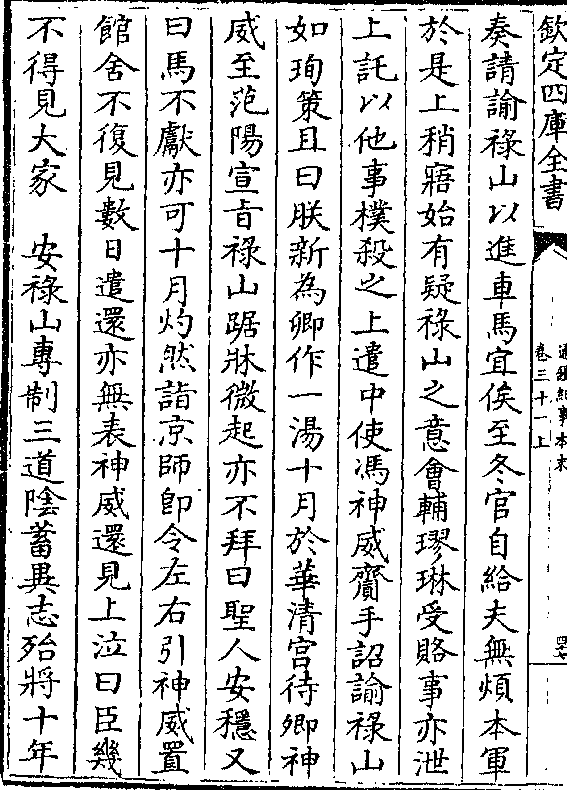 欽定四庫全書
通鑑紀事本末
卷三十一上
奏請諭祿山以進車馬宜俟至冬官自給夫無煩本軍
於是上稍寤始有疑祿山之意會輔璆琳受賂事亦泄
上託以他事撲殺之上遣中使馮神威齎手詔諭祿山
如珣策且曰朕新為卿作一湯十月於華清宫待卿神
威至范陽宣旨祿山踞牀微起亦不拜曰聖人安穩又
曰馬不獻亦可十月灼然詣京師即令左右引神威置
館舍不復見數日遣還亦無表神威還見上泣曰臣幾
不得見大家　安祿山專制三道陰蓄異志殆將十年